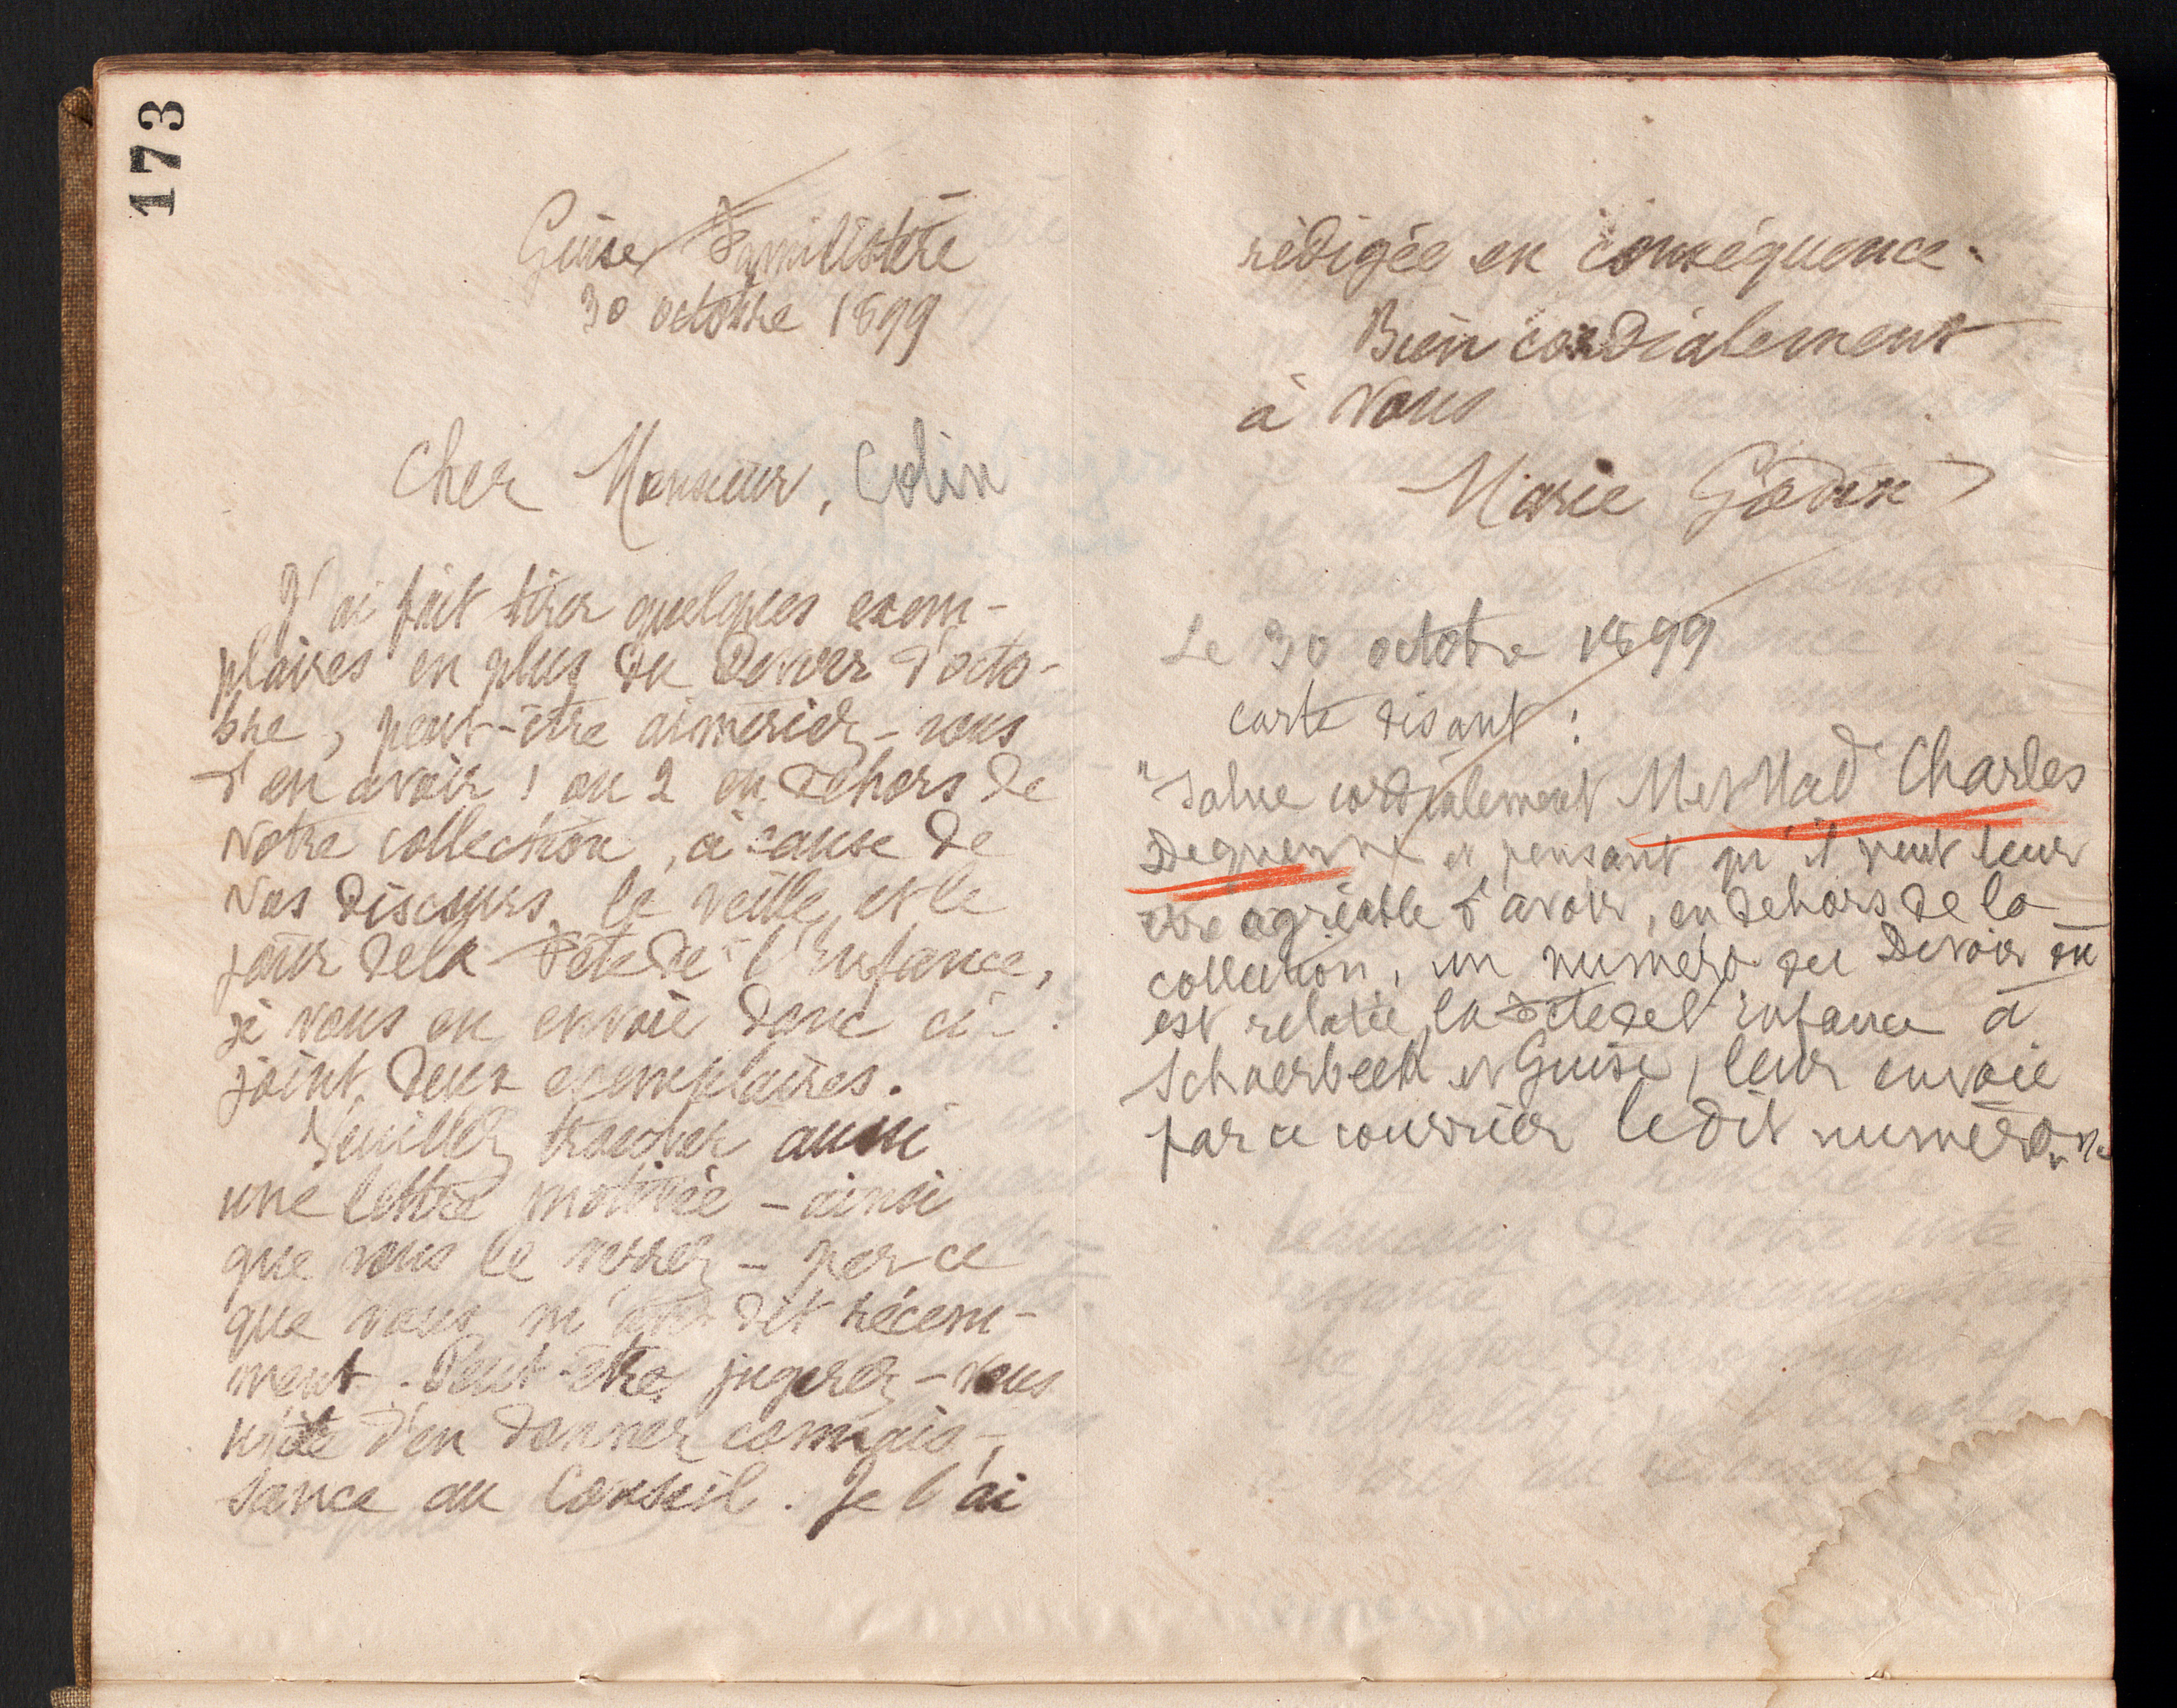 173
Guise Familistère
30 octobre 1899
Cher Monsieur, Colin
J'ai fait tirer quelques exem-
plaires en plus du Devoir d'octo-
bre, peut-être aimeriez-vous
d'en avoir 1 ou 2 en dehors de
votre collection, à cause de
vos discours, la veille et le
jour de la Fête de l'Enfance,
je vous en envoie donc ci-
joint deux exemplaires.
Veuillez trouver aussi
une lettre motivée - ainsi
que vous le verrez - par ce
que vous m'avez dit récem-
ment. Peut-être jugerez-vous
utile d'en donner connais-
sance au Conseil. Je l'ai
rédigée en conséquence.
Bien cordialement
à vous
Marie Godin
Le 30 octobre 1899
carte disant :
"Salue cordialement M et Mad Charles
Dequenne et pensant qu'il peut leur
être agréable d'avoir, en dehors de la
collection, un numéro du Devoir où
est relatée la Fête de l'enfance à
Schaerbeek et Guise, leur envoie
par ce courrier le dit numéro.